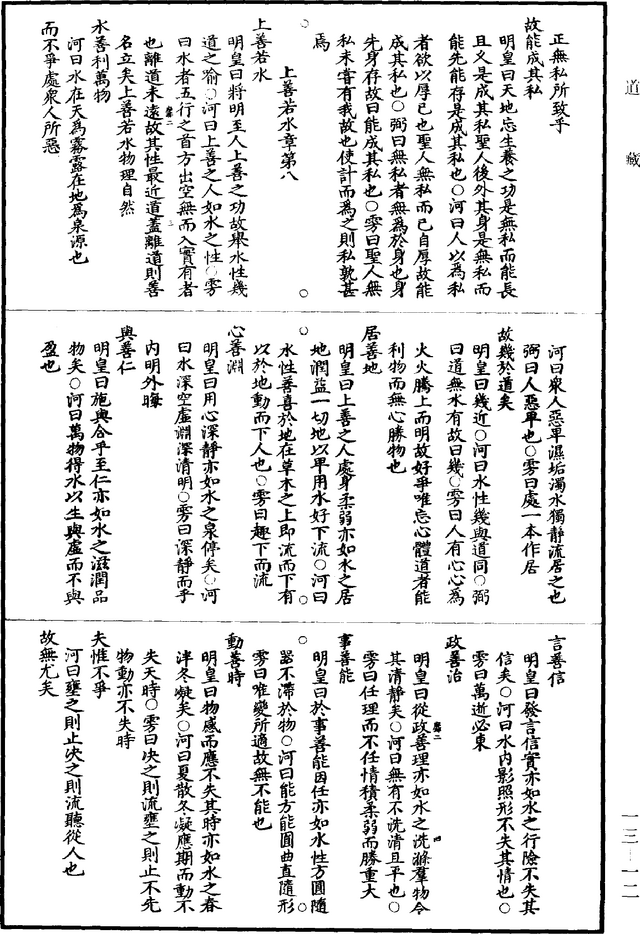 道藏
正無私所致乎
故能成其私
明皇曰天地忘生養之功是無私而能長
且久是成其私聖人後外其身是無私而
能先能存是成其私也○河曰人以為私
者欲以厚已也聖人無私而已自厚故能
成其私也○弼曰無私者無為於身也身
先身存故曰能成其私也○雱曰聖人無
私未嘗有我故也使計而為之則私孰甚
焉
上善若水章第八
上善若水
明皇曰將明至人上善之功故舉水性幾
道之喻○河曰上善之人如水之性○雱
曰水者五行之首方出空無而入實有者
也離道未遠故其性最近道蓋離道則善
名立矣上善若水物理自然
水善利萬物
河曰水在天為霧露在地為泉源也
而不爭處衆人所惡
河曰衆人惡卑濕垢濁水獨靜流居之也
弼曰人惡卑也○雱曰處一本作居
故幾於道矣
明皇曰幾近○河曰水性幾與道同○弼
曰道無水有故曰幾○雱曰人有心心為
火火騰上而明故好爭唯忘心體道者能
利物而無心勝物也
居善地
明皇曰上善之人處身柔弱亦如水之居
地潤益一切地以卑用水好下流○河曰
水性善喜於地在草木之上即流而下有
以於地動而下人也○雱曰趣下而流
心善淵
明皇曰用心深靜亦如水之泉停矣○河
曰水深空虛淵深清明○雱曰深靜而乎
內明外晦
與善仁
明皇曰施與合乎至仁亦如水之滋潤品
物矣○河曰萬物得水以生與虛而不與
盈也
言善信
明皇曰發言信實亦如水之行險不失其
信矣○河曰水內影照形不失其情也○
雱曰萬逝必東
政善治
明皇曰從政善理亦如水之洗滌羣物令
其清靜矣○河曰無有不洗清且平也○
雱曰任理而不任情積柔弱而勝重大
事善能
明皇曰於事善能因任亦如水性方圓隨
器不滯於物○河曰能方能圓曲直隨形
雱曰唯變所適故無不能也
動善時
明皇曰物感而應不失其時亦如水之春
泮冬凝矣○河曰夏散冬凝應期而動不
失天時○雱曰決之則流壅之則止不先
物動亦不失時
夫惟不爭
河曰壅之則止決之則流聽從人也
故無尤矣
一三—一二